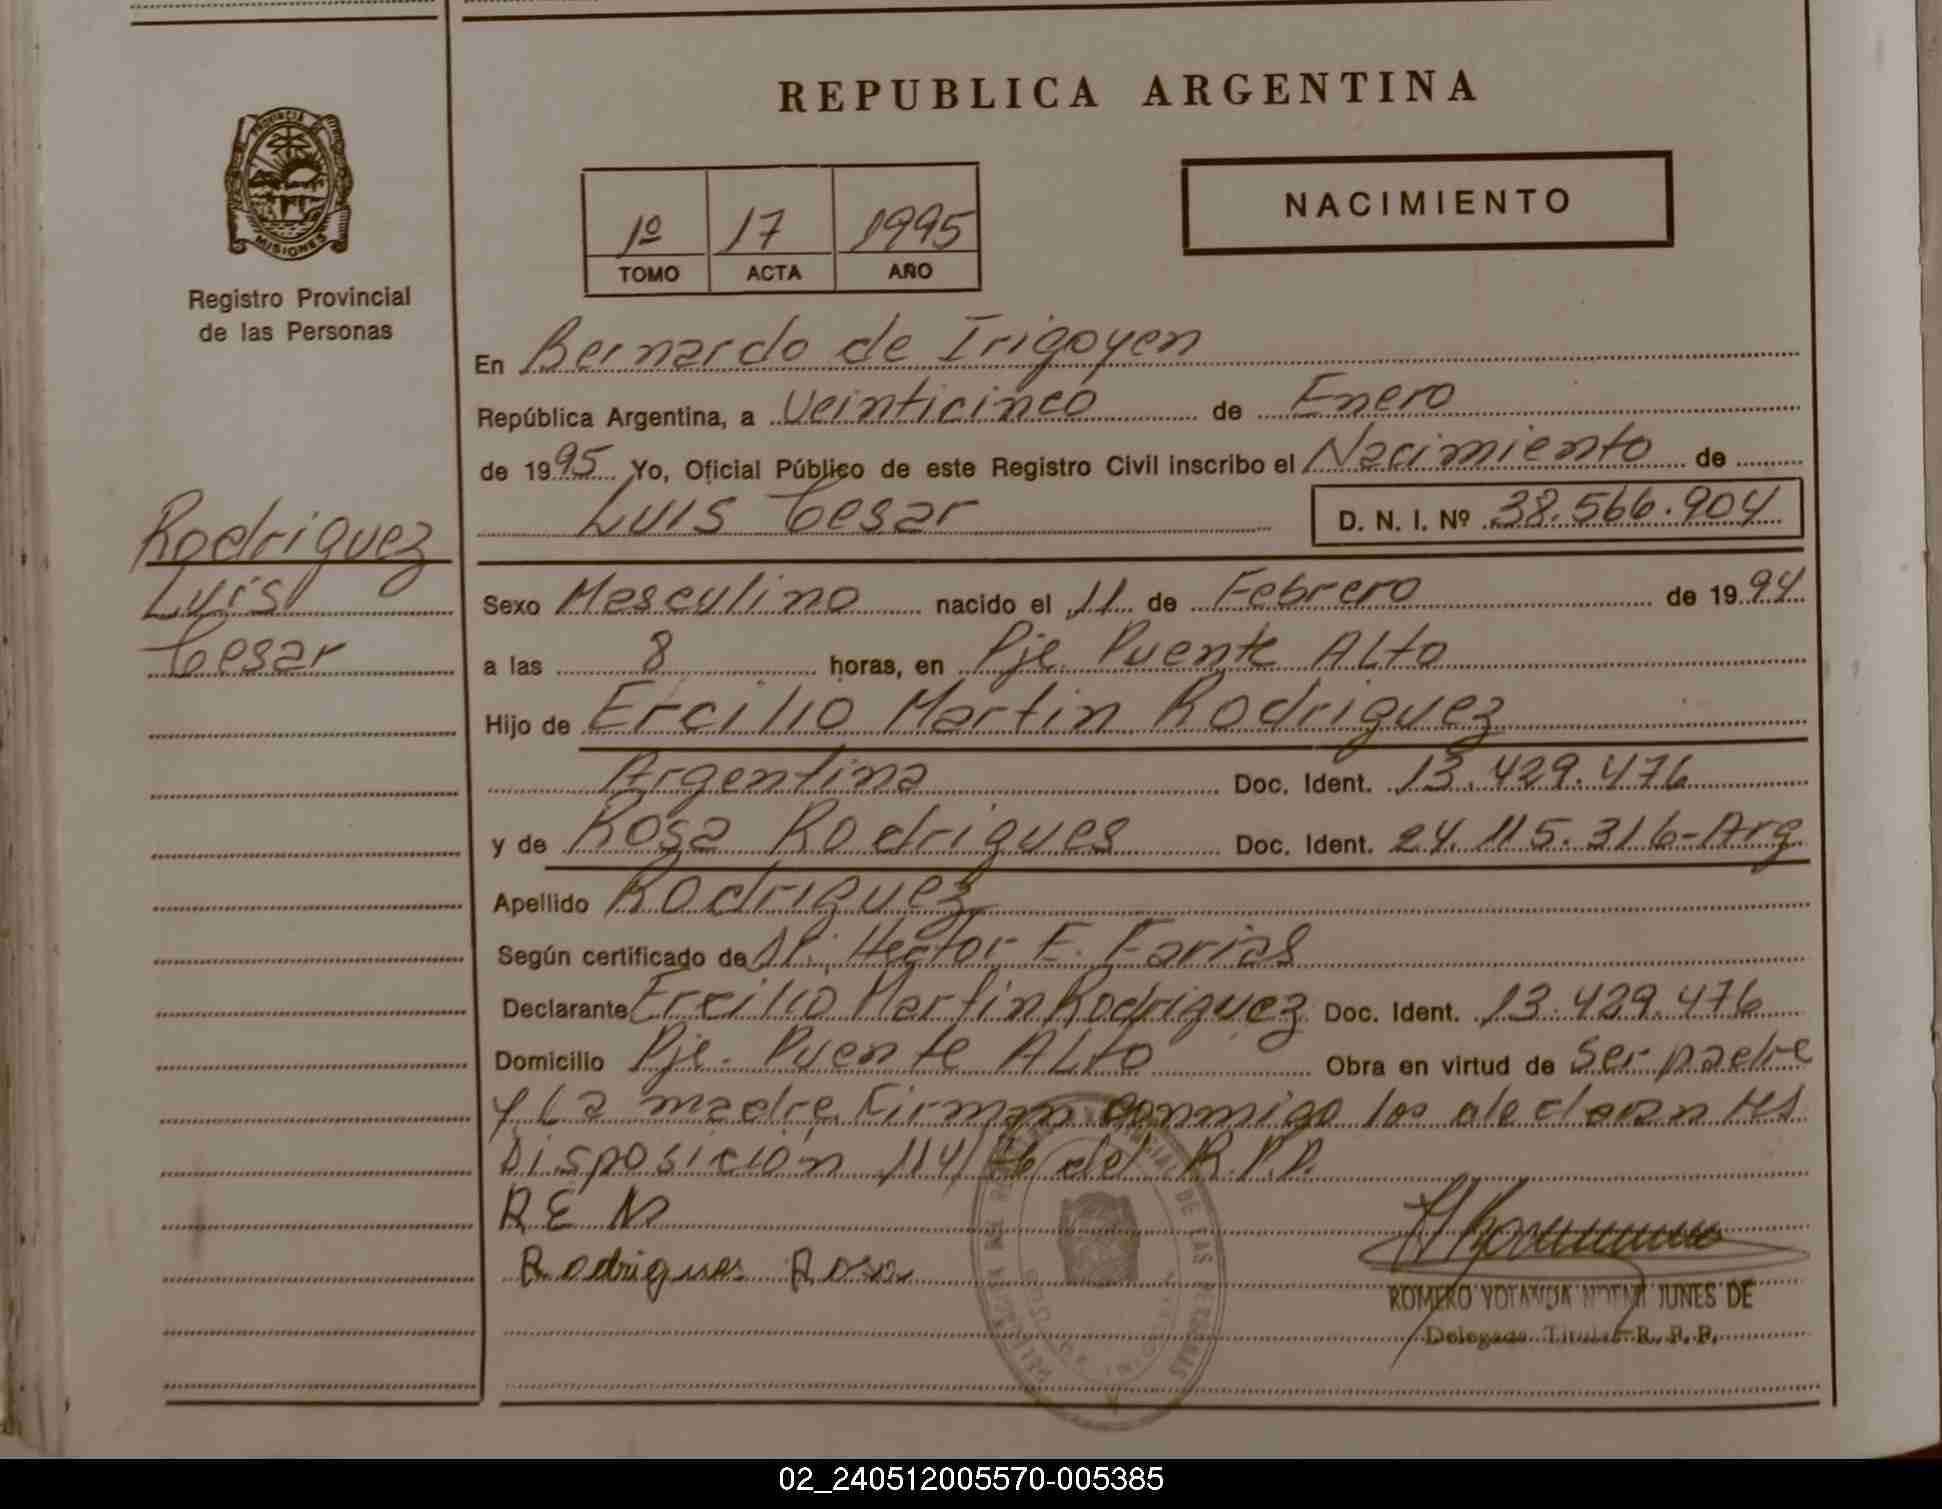 REPUBLICA ARGENTINA
PROVINCIA DE
MISIONES
Registro Provincial
de las Personas
1º 17 1995
TOMO ACTA AÑO
NACIMIENTO
En Bernardo de Irigoyen
República Argentina, a Veinticinco de Enero
de 1995 Yo, Oficial Público de este Registro Civil inscribo el Nacimiento de
Luis Cesar D. N. I. Nº 38.566.904
Rodriguez
Luis
Cesar
Sexo Masculino nacido el 11 de Febrero de 1994
a las 8 horas, en Pje Puente Alto
Hijo de Ercilio Martin Rodriguez
Argentina Doc. Ident. 13.429.476
y de Rosa Rodrigues Doc. Ident. 24.115.316-Arg
Apellido Rodriguez
Según certificado de Dr. Hector E. Farias
Declarante Ercilio Martin Rodriguez Doc. Ident. 13.429.476
Domicilio Pje. Puente Alto Obra en virtud de Ser padre
y La madre. Firman conmigo los declarantes
Disposición 114/76 del R.P.P.
R E M
Rodrigues Rosa
ROMERO YOLANDA JUNES DE
Delegada Titular R. P. P.
02_240512005570-005385